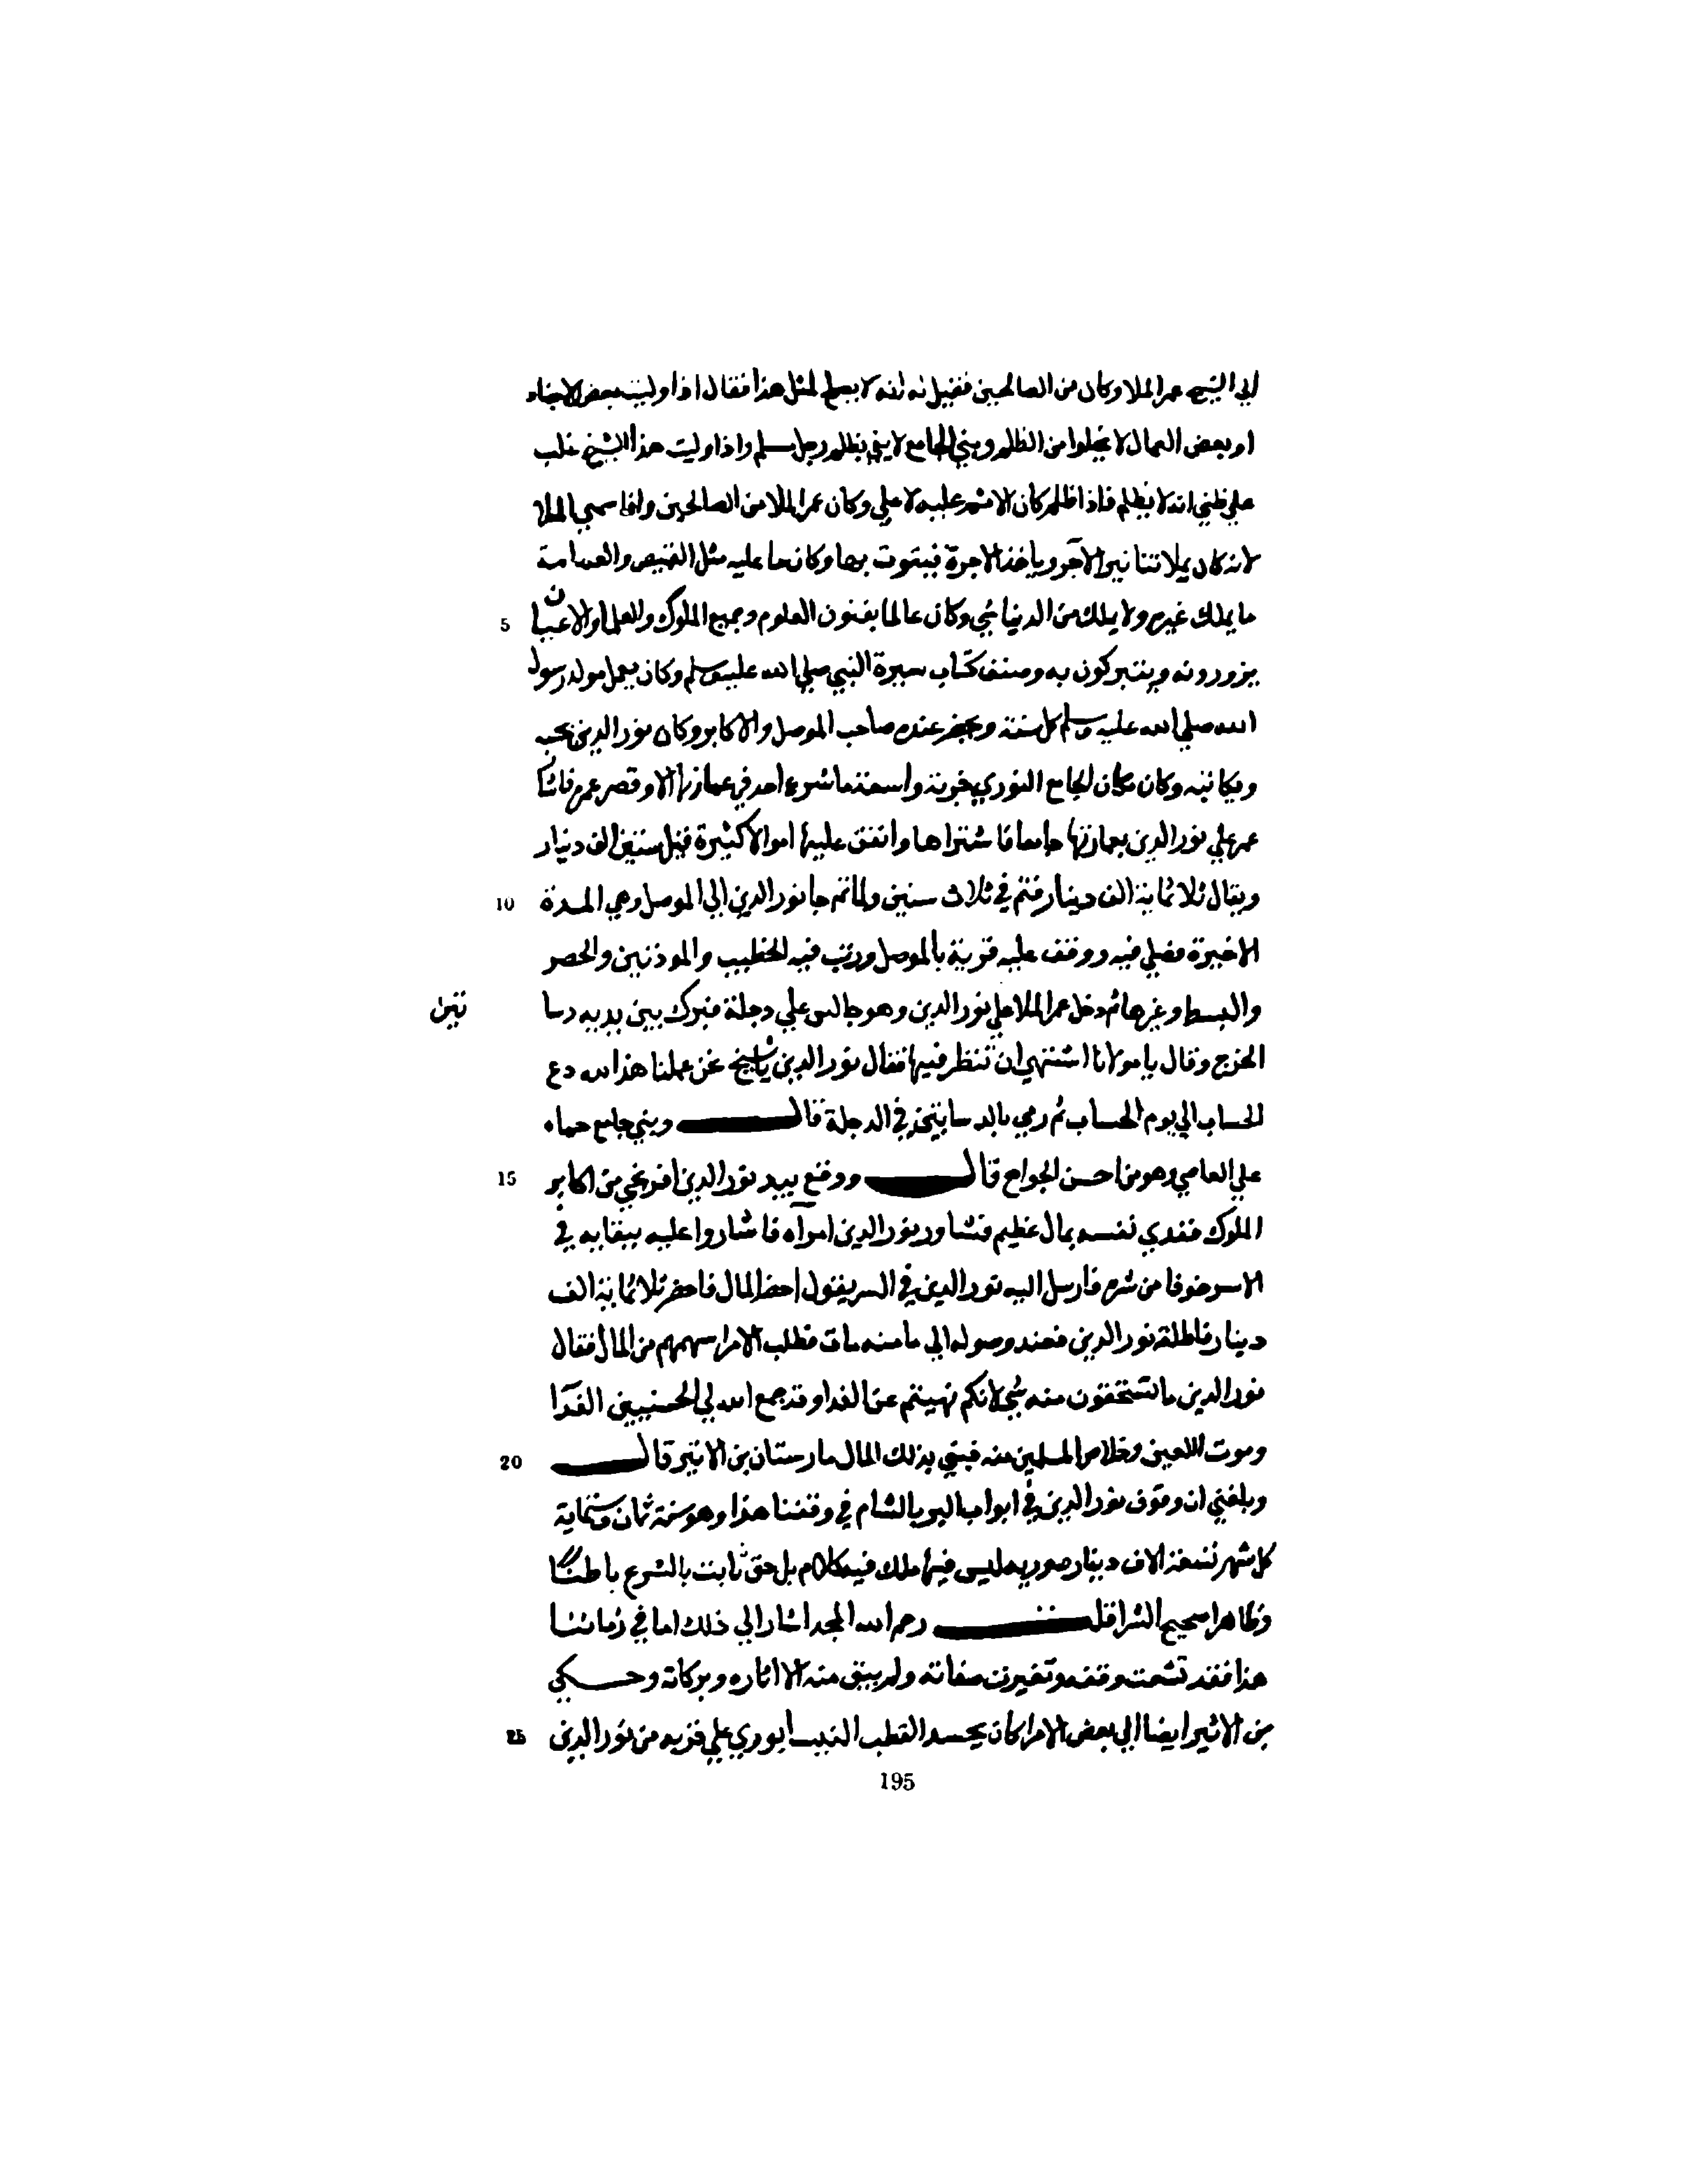 الي الشيخ عمر الملا وكان من الصالحين فقيل له انه لا يصلح لمثل هذا فقال اذا وليت بعض الاجناد
او بعض العمال لا يخلوا من الظلم وبني الجامع لا يفي بظلم رجل مسلم واذا وليت هذا الشيخ غلب
علي ظني انه لا يظلم فاذا ظلم كان الاثم عليه لا علي وكان عمر الملا من الصالحين وانما سمي الملا
لانه كان يملا تنانير الآجر وياخذ الاجرة فيتقوت بها وكان ما عليه مثل القميص والعمامة
ما يملك غيره ولا يملك من الدنيا شي وكان عالما بفنون العلوم وجميع الملوك والعلما والاعيان 5
يزورونه ويتبركون به وصنف كتاب سيرة النبي صلي الله عليه وسلم وكان يعمل مولد رسول
الله صلي الله عليه وسلم كل سنة ويحضر عنده صاحب الموصل والاكابر وكان نور الدين يحبه
ويكاتبه وكان مكان الجامع النوري خربة واسعة ما شرع احد في عمارتها الا وقصر عمره فاشار
عمر علي نور الدين بعمارتها جامعا فاشتراها وانفق عليها اموالا كثيرة قيل ستين الف دينار
ويقال ثلاثماية الف دينار فتم في ثلاث سنين ولما تم جا نور الدين الي الموصل وهي المدة 10
الاخيرة فصلي فيه ووقف عليه قرية بالموصل ورتب فيه الخطيب والموذنين والحصر
والبسط وغيرها ثم دخل عمر الملا علي نور الدين وهو جالس علي دجلة فترك بين يديه دسا تين
الخرج وقال يا مولانا اشتهي ان تنظر فيها فقال نور الدين يا شيخ نحن عملنا هذا لله دع
الحساب الي يوم الحساب ثم رمي بالدساتين في الدجلة قال وبني جامع حماه
علي العاصي وهو من احسن الجوامع قال ووقع بيد نور الدين افرنجي من اكابر 15
الملوك ففدي نفسه بمال عظيم فشاور نور الدين امراه فاشاروا عليه ببقايه في
الاسر خوفا من شره فارسل اليه نور الدين في السر يقول احضر المال فاحضر ثلاثماية الف
دينار فاطلقه نور الدين فعند وصوله الي مامنه مات فطلب الامرا سهمهم من المال فقال
نور الدين ما تستحقون منه شي لانكم نهيتم عن الفدا وقد جمع الله لي الحسنيين الفدآ
وموت اللعين وخلاص المسلمين منه فبني بذلك المال مارستان بن الاثير قال 20
وبلغني ان وقوف نور الدين في ابواب البر بالشام في وقتنا هذا وهو سنة ثمان وستماية
كل شهر تسعة الاف دينار صوريه ليس فيها ملك فيه كلام بل حق ثابت بالشرع باطنا
وظاهرا صحيح الشرا قلت رحم الله المجد اشار الي ذلك اما في زماننا
هذا فقد تشعثت وقفه وتغيرت صفاته ولم يبق منه الا اثاره وبركاته وحكي
بن الاثير ايضا الي بعض الامرا كان يحسد القطب النيسابوري علي قربه من نور الدين 25
195